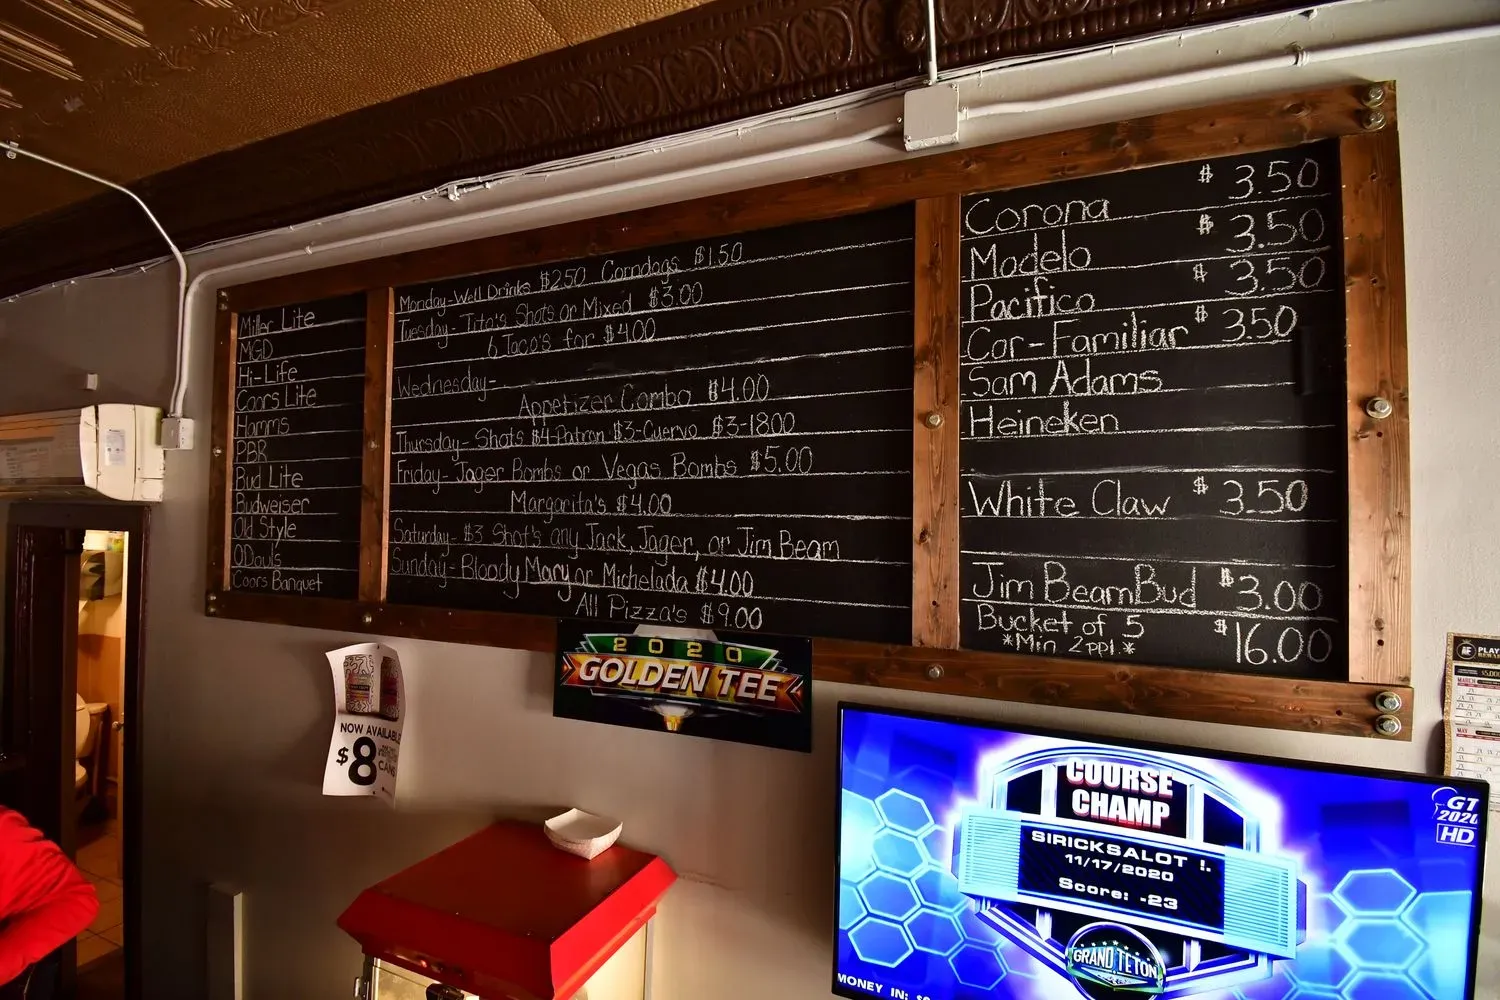 Miller Lite
MGD
Hi-Life
Coors Lite
Hamms
PBR
Bud Lite
Budweiser
Old Style
ODouls
Coors Banquet
Monday-Well Drinks $2.50 Corndogs $1.50
Tuesday-Tito's Shots or Mixed $3.00
6 Taco's for $4.00
Wednesday-
Appetizer Combo $4.00
Thursday-Shots $4-Patron $3-Cuervo $3-1800
Friday-Jager Bombs or Vegas Bombs $5.00
Margarita's $4.00
Saturday-$3 Shot's any Jack, Jager, or Jim Beam
Sunday-Bloody Mary or Michelada $4.00
All Pizza's $9.00
Corona $3.50
Modelo $3.50
Pacifico $3.50
Cor-Familiar $3.50
Sam Adams
Heineken
White Claw $3.50
Jim Beam Bud $3.00
Bucket of 5 $16.00
*Min 2ppl.*
NOW AVAILABLE
$8
CANS
2020
GOLDEN TEE
COURSE
CHAMP
SIRICKSALOT !.
11/17/2020
Score: -23
GRAND TETON
GT
2020
HD
MONEY IN:
PLAY
MARCH
MAY